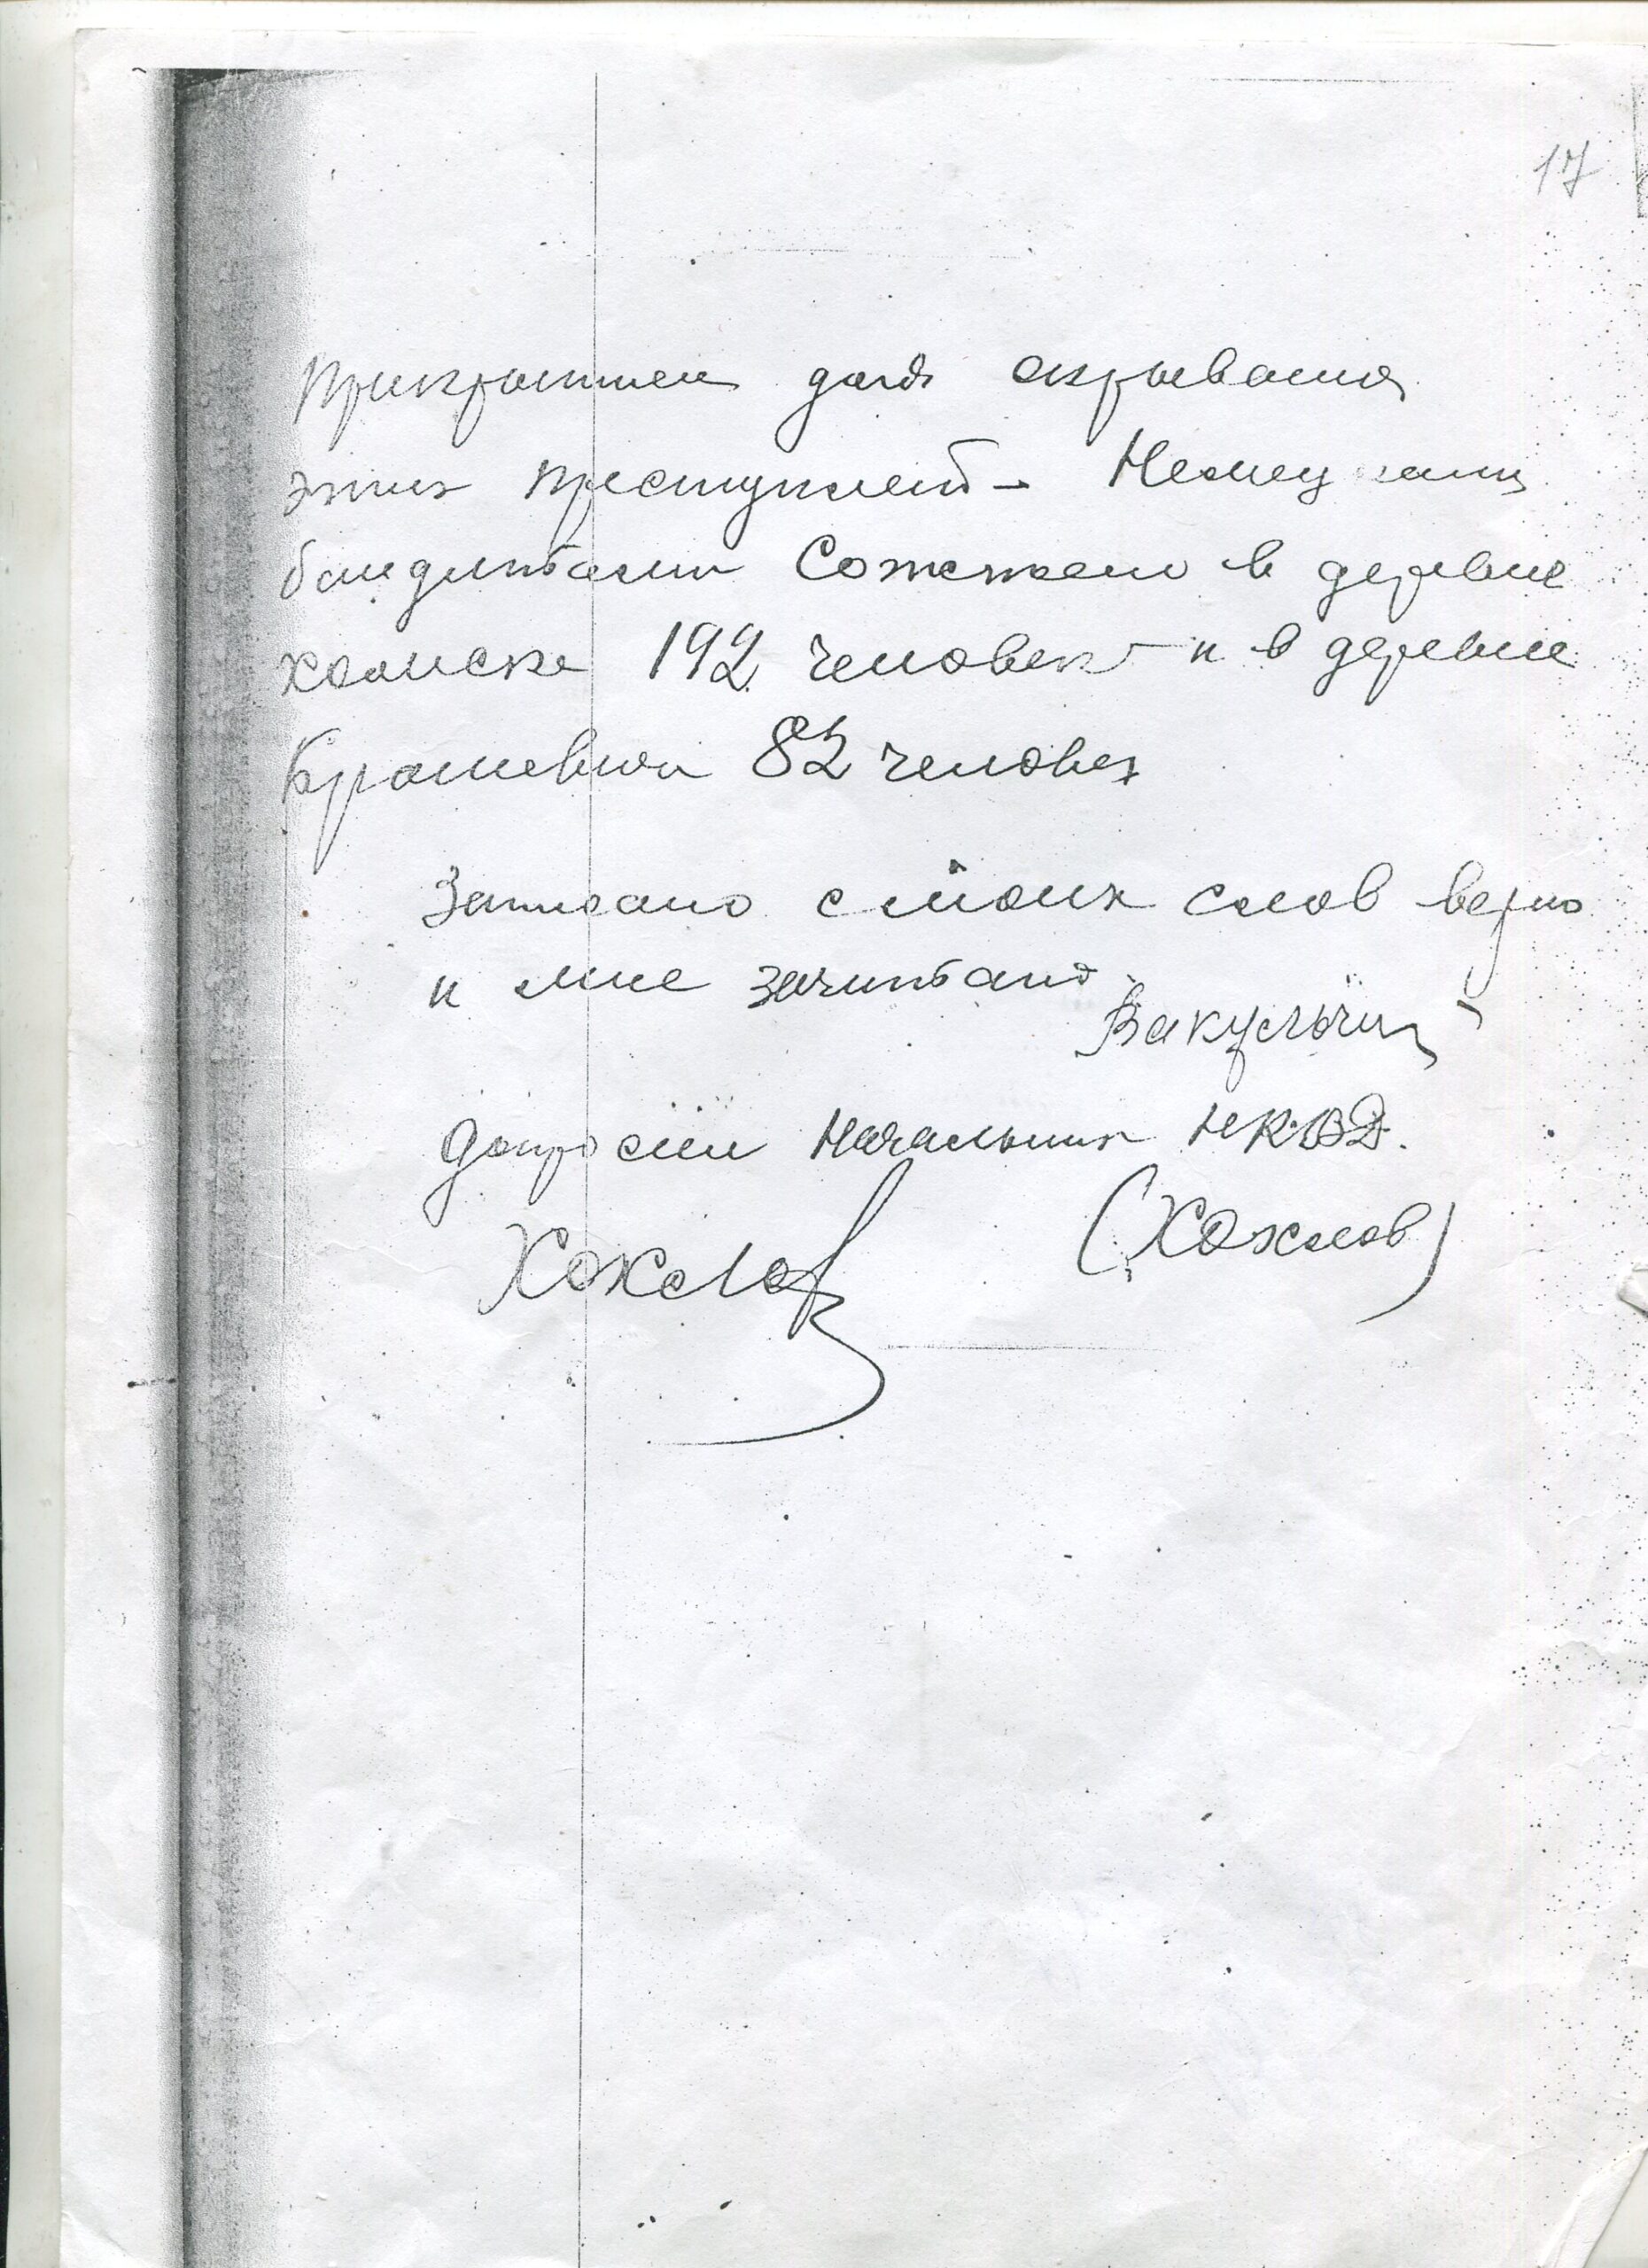 17
прикрытием для скрывания
этих преступлений - Немецкими
бандитами Сожжено в деревне
холмске 192 человек и в деревне
82 человек
Записано с моих слов верно
и мне зачитано.
Вакульчик
Допросил Начальник НКВД.
Хохлов (Хохлов)